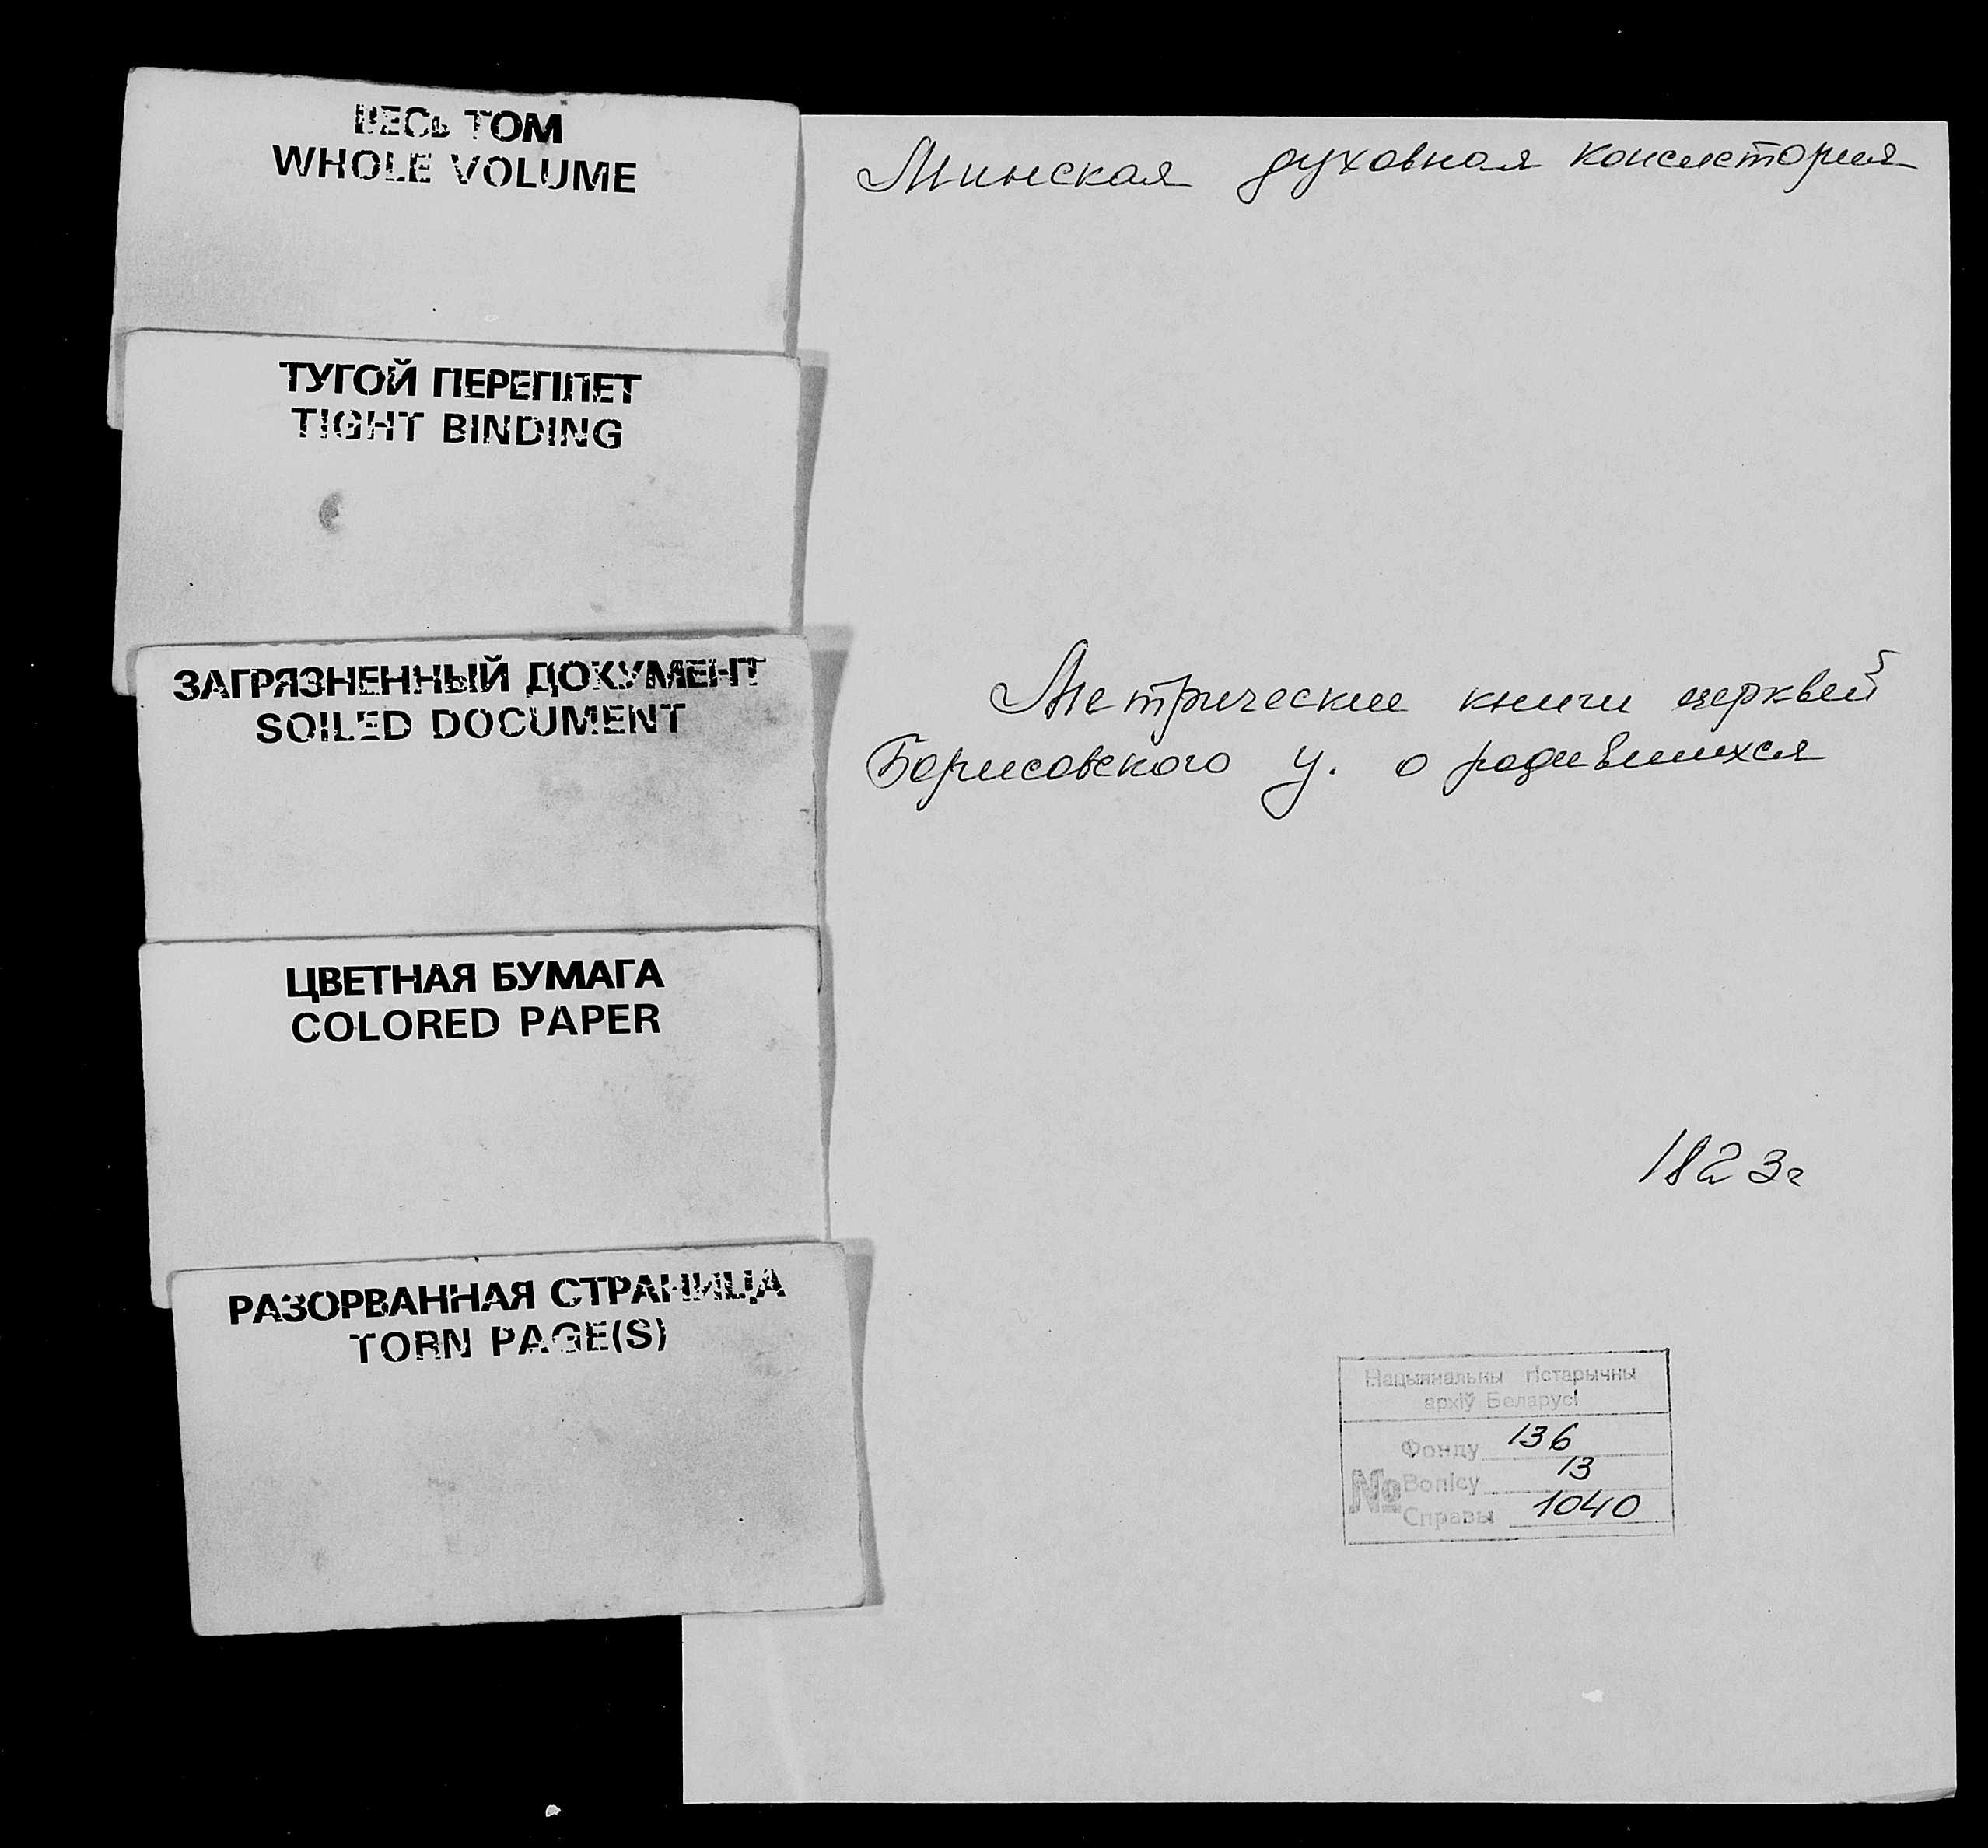 ВЕСЬ ТОМ
WHOLE VOLUME
ТУГОЙ ПЕРЕПЛЕТ
TIGHT BINDING
ЗАГРЯЗНЕННЫЙ ДОКУМЕНТ
SOILED DOCUMENT
ЦВЕТНАЯ БУМАГА
COLORED PAPER
РАЗОРВАННАЯ СТРАНИЦА
TORN PAGE(S)
Минская духовная консистория
Метрические книги церквей
Борисовского у. о родившихся
1823г
Нацыянальны гістарычны
архіў Беларусі
Фонду 136
№ Вопісу 13
Справы 1040